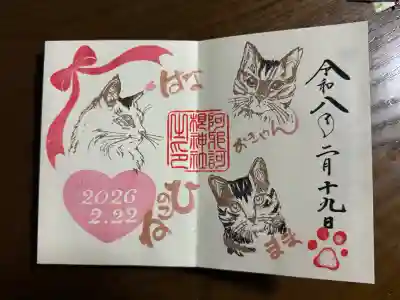 令和八年二月十九日
おきゃん
まま
はな
阿邪訶
根神社
之印
2026
2.22
ねこのひ